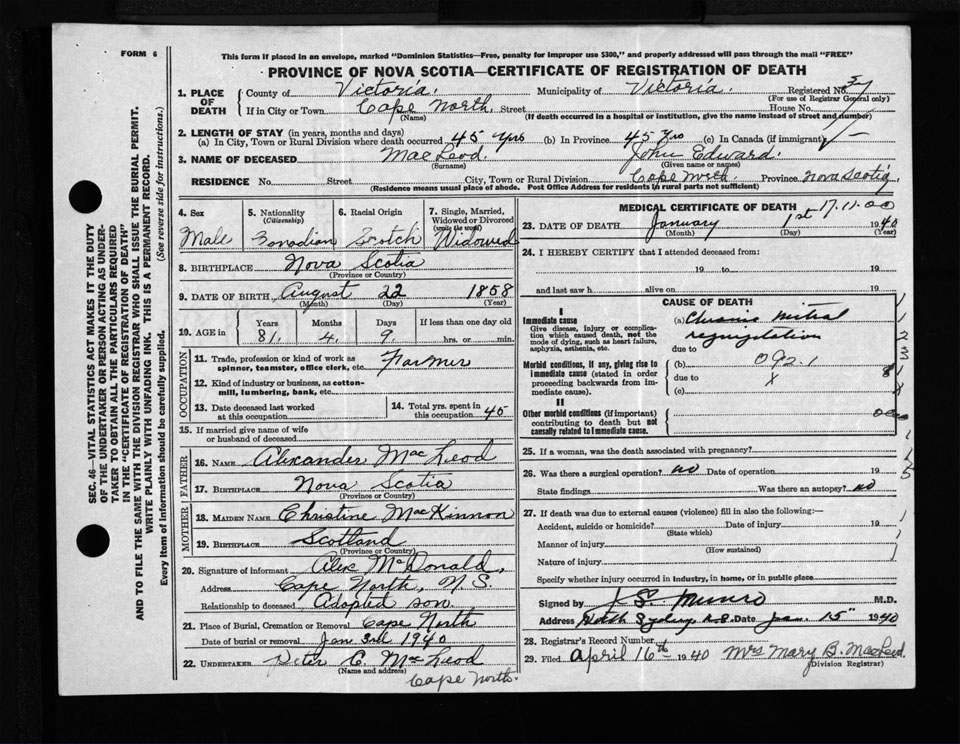 FORM 6
This form if placed in an envelope, marked "Dominion Statistics—Free, penalty for improper use $300," and properly addressed will pass through the mail "FREE"
PROVINCE OF NOVA SCOTIA—CERTIFICATE OF REGISTRATION OF DEATH
SEC. 46—VITAL STATISTICS ACT MAKES IT THE DUTY
OF THE UNDERTAKER OR PERSON ACTING AS UNDER-
TAKER TO OBTAIN ALL THE PARTICULARS REQUIRED
IN THE "CERTIFICATE OF REGISTRATION OF DEATH"
AND TO FILE THE SAME WITH THE DIVISION REGISTRAR WHO SHALL ISSUE THE BURIAL PERMIT.
WRITE PLAINLY WITH UNFADING INK. THIS IS A PERMANENT RECORD.
Every item of information should be carefully supplied. (See reverse side for instructions.)
1. PLACE OF DEATH County of Victoria. Municipality of Victoria. Registered No. 37
(For use of Registrar General only)
If in City or Town Cape North, Street House No.
(Name) (If death occurred in a hospital or institution, give the name instead of street and number)
2. LENGTH OF STAY (in years, months and days)
(a) In City, Town or Rural Division where death occurred 45 yrs (b) In Province 45 Yrs (c) In Canada (if immigrant)
3. NAME OF DECEASED MacLeod. John Edward.
(Surname) (Given name or names)
RESIDENCE No. Street City, Town or Rural Division Cape North Province Nova Scotia,
(Residence means usual place of abode. Post Office Address for residents in rural parts not sufficient)
4. Sex
Male
5. Nationality
(Citizenship)
Canadian
6. Racial Origin
Scotch
7. Single, Married,
Widowed or Divorced
(write the word)
Widowed
8. BIRTHPLACE Nova Scotia
(Province or Country)
9. DATE OF BIRTH August 22 1858
(Month) (Day) (Year)
10. AGE in Years Months Days If less than one day old
81, 4, 9 hrs. or min.
OCCUPATION
11. Trade, profession or kind of work as
spinner, teamster, office clerk, etc. Farmer
12. Kind of industry or business, as cotton-
mill, lumbering, bank, etc.
13. Date deceased last worked
at this occupation
14. Total yrs. spent in
this occupation 45
15. If married give name of wife
or husband of deceased
FATHER
16. NAME Alexander MacLeod
17. BIRTHPLACE Nova Scotia
(Province or Country)
MOTHER
18. MAIDEN NAME Christine MacKinnon
19. BIRTHPLACE Scotland
(Province or Country)
20. Signature of informant Alex McDonald,
Address Cape North, N.S.
Relationship to deceased Adopted son.
21. Place of Burial, Cremation or Removal Cape North
Date of burial or removal Jan 3rd 1940
22. UNDERTAKER Peter C. McLeod
(Name and address)
Cape North.
MEDICAL CERTIFICATE OF DEATH 17.11.00
23. DATE OF DEATH January 1st 1940
(Month) (Day) (Year)
24. I HEREBY CERTIFY that I attended deceased from:
19 to 19
and last saw h alive on 19
CAUSE OF DEATH
I
Immediate cause
Give disease, injury or complica-
tion which caused death, not the
mode of dying, such as heart failure,
asphyxia, asthenia, etc.
(a) Chronic mitral
regurgitation
due to
Morbid conditions, if any, giving rise to
immediate cause (stated in order
proceeding backwards from im-
mediate cause).
(b) 092.1
due to x
(c)
II
Other morbid conditions (if important)
contributing to death but not
causally related to immediate cause.
25. If a woman, was the death associated with pregnancy?
26. Was there a surgical operation? no Date of operation 19
State findings Was there an autopsy? no
27. If death was due to external causes (violence) fill in also the following:—
Accident, suicide or homicide? Date of injury 19
(State which)
Manner of injury
(How sustained)
Nature of injury
Specify whether injury occurred in industry, in home, or in public place
Signed by J. S. Munro M.D.
Address North Sydney N.S. Date Jan. 15" 1940
28. Registrar's Record Number
29. Filed April 16th 1940 Mrs Mary B. MacLeod.
(Division Registrar)